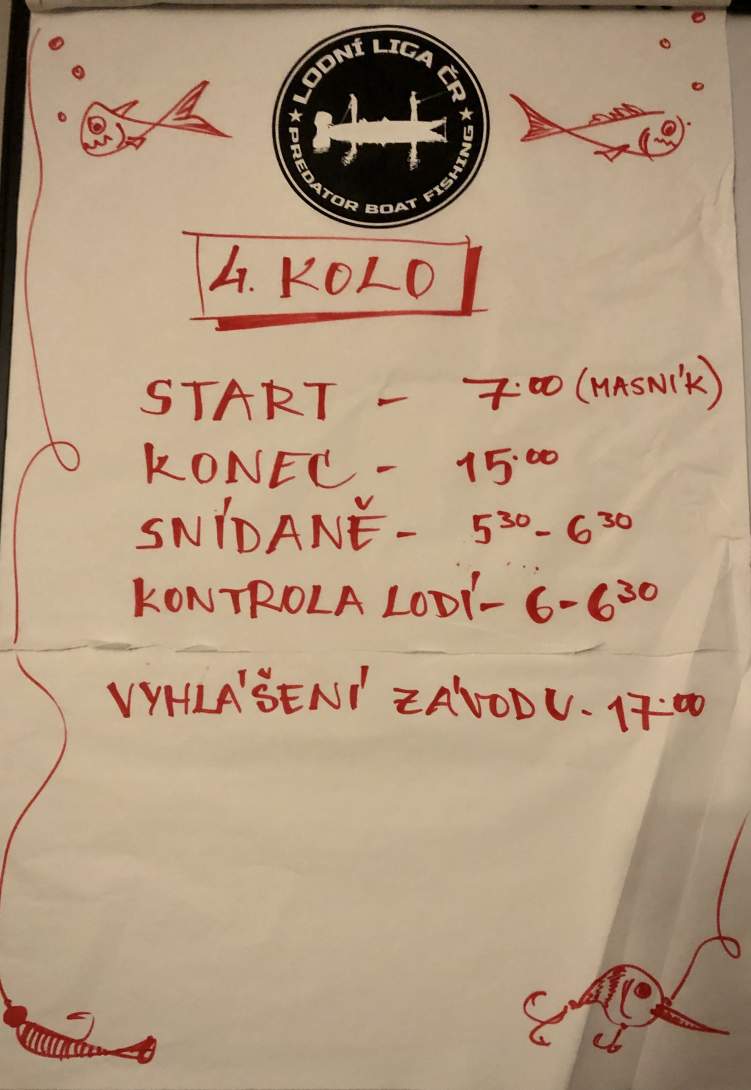 LODNÍ LIGA ČR
PREDATOR BOAT FISHING
4. KOLO
START - 7:00 (MASNÍK)
KONEC - 15:00
SNÍDANĚ - 5 30 - 6 30
KONTROLA LODÍ - 6 - 6 30
VYHLÁŠENÍ ZÁVODU - 17:00